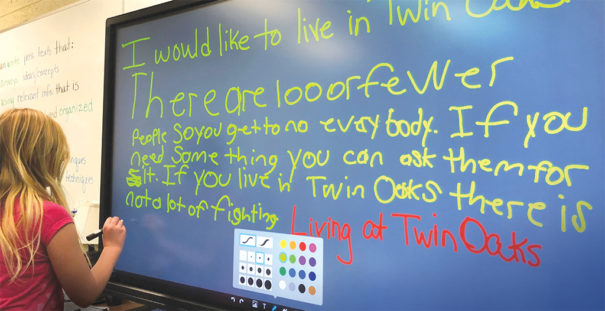 I would like to live in Twin Oaks
There are 100 or fewer
people so you get to no evrybody. If you
need something you can ask them for
it. If you live in Twin Oaks there is
not a lot of fighting Living at Twin Oaks
text that:
ideas/concepts
relevant info. that is
organized
techniques